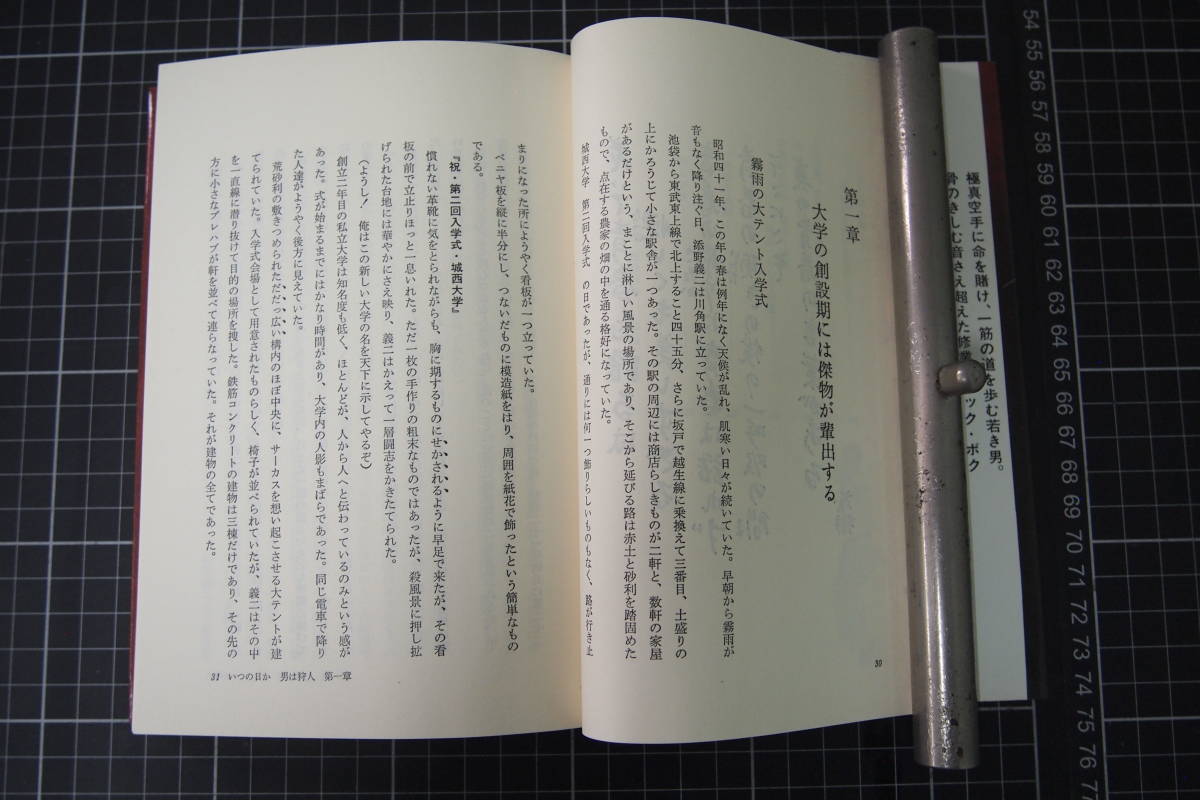 極真空手に命を賭け、一筋の道を歩む若き男。
骨のきしむ音さえ超えた修業
ック・ボク
第一章
大学の創設期には傑物が輩出する
霧雨の大テント入学式
昭和四十一年、この年の春は例年になく天候が乱れ、肌寒い日々が続いていた。早朝から霧雨が
音もなく降り注ぐ日、添野義二は川角駅に立っていた。
池袋から東武東上線で北上すること四十五分、さらに坂戸で越生線に乗換えて三番目、土盛りの
上にかろうじて小さな駅舎が一つあった。その駅の周辺には商店らしきものが二軒と、数軒の家屋
があるだけという、まことに淋しい風景の場所であり、そこから延びる路は赤土と砂利を踏固めた
もので、点在する農家の畑の中を通る格好になっていた。
城西大学 第二回入学式 の日であったが、通りには何一つ飾りらしいものもなく、路が行き止
30
まりになった所にようやく看板が一つ立っていた。
ベニヤ板を縦に半分にし、つないだものに模造紙をはり、周囲を紙花で飾ったという簡単なもの
である。
『祝・第二回入学式・城西大学』
慣れない革靴に気をとられながらも、胸に期するものにせかされるように早足で来たが、その看
板の前で立止りほっと一息いれた。ただ一枚の手作りの粗末なものではあったが、殺風景に押し拡
げられた台地には華やかにさえ映り、義二はかえって一層闘志をかきたてられた。
(ようし! 俺はこの新しい大学の名を天下に示してやるぞ)
創立二年目の私立大学は知名度も低く、ほとんどが、人から人へと伝わっているのみという感が
あった。式が始まるまでにはかなり時間があり、大学内の人影もまばらであった。同じ電車で降り
た人達がようやく後方に見えていた。
荒砂利の敷きつめられただだっ広い構内のほぼ中央に、サーカスを想い起こさせる大テントが建
てられていた。入学式会場として用意されたものらしく、椅子が並べられていたが、義二はその中
を一直線に潜り抜けて目的の場所を捜した。鉄筋コンクリートの建物は三棟だけであり、その先の
方に小さなプレハブが軒を並べて連らなっていた。それが建物の全てであった。
31 いつの日か 男は狩人 第一章
54
55
56
57
58
59
60
61
62
63
64
65
66
67
68
69
70
71
72
73
74
75
76
77